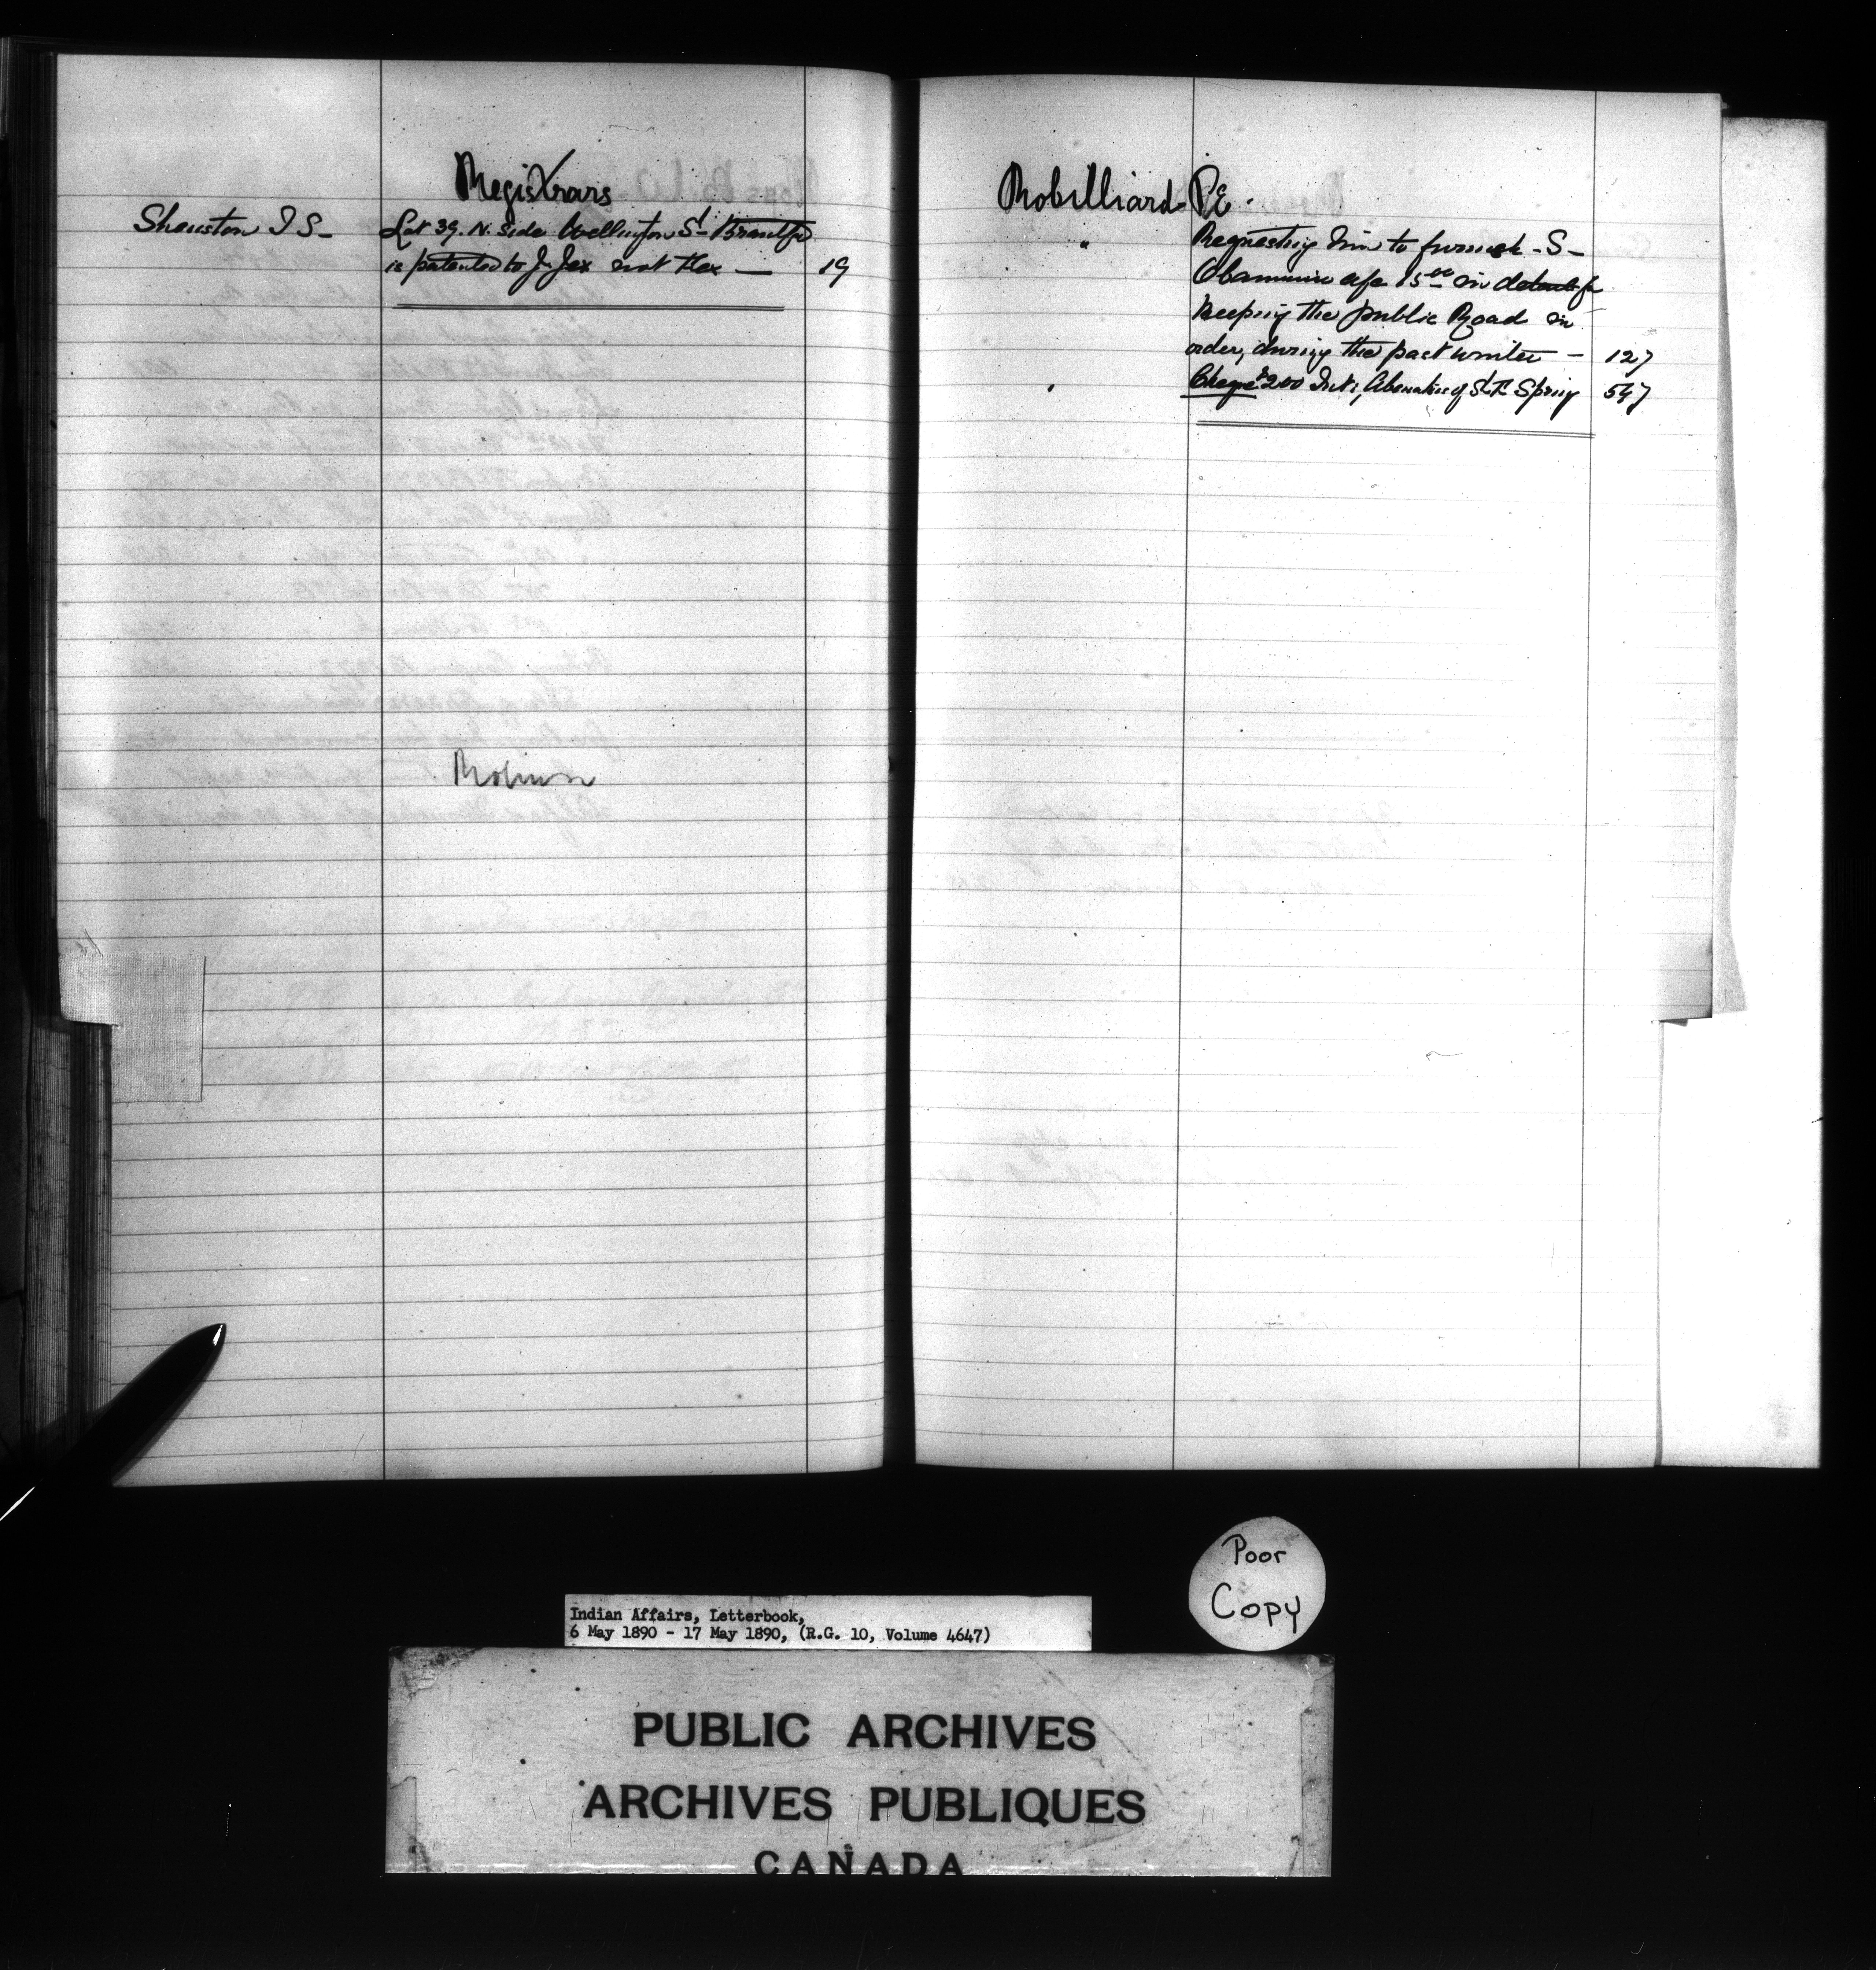 Registrars
Shenston T S - Lot 39. N. side Wellington St Brantford
is patented to J. Jex not Kex — 19
Robinson
Robilliard P.E.
" Requesting him to furnish - S -
Obamsawin a/c 15.00 in detail for
Keeping the public Road in
order, during the past winter — 127
" Cheque $200 Int; Abenakis of St. F. Spring 547
Poor
Copy
Indian Affairs, Letterbook,
6 May 1890 - 17 May 1890, (R.G. 10, Volume 4647)
PUBLIC ARCHIVES
ARCHIVES PUBLIQUES
CANADA